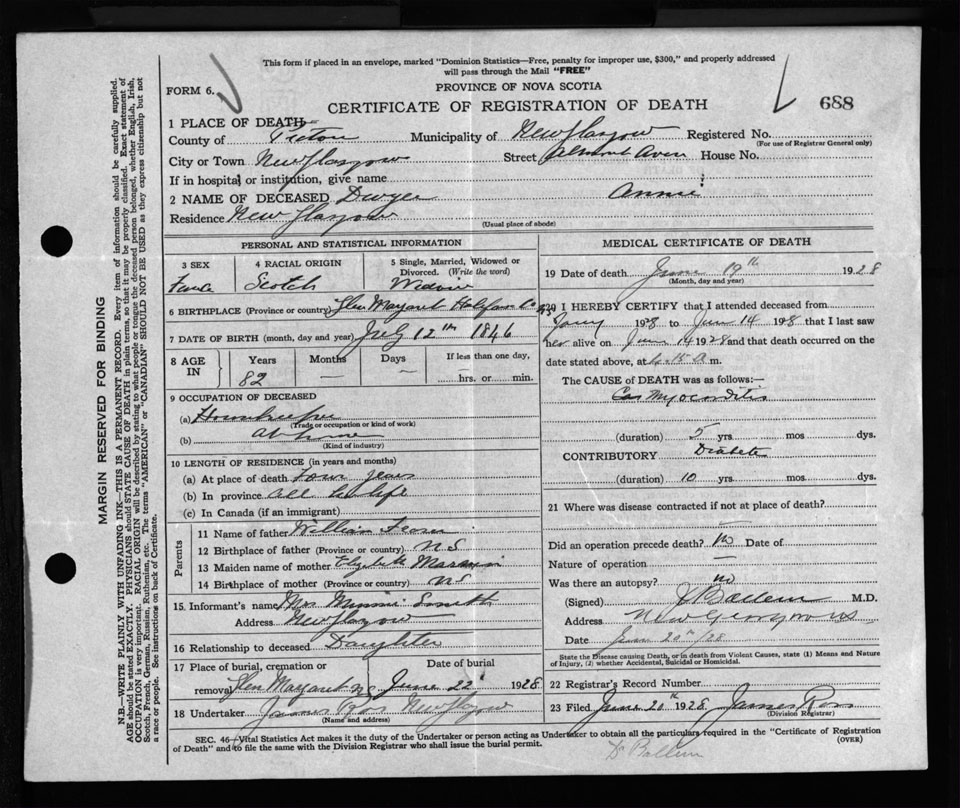 This form if placed in an envelope, marked "Dominion Statistics—Free, penalty for improper use, $300," and properly addressed
will pass through the Mail "FREE"
FORM 6.
PROVINCE OF NOVA SCOTIA
CERTIFICATE OF REGISTRATION OF DEATH
688
1 PLACE OF DEATH
County of Pictou Municipality of New Glasgow Registered No.
(For use of Registrar General only)
City or Town New Glasgow Street Belmont Aven House No.
If in hospital or institution, give name
2 NAME OF DECEASED Dwyer Annie
Residence New Glasgow
(Usual place of abode)
PERSONAL AND STATISTICAL INFORMATION
3 SEX 4 RACIAL ORIGIN 5 Single, Married, Widowed or
Divorced. (Write the word)
Scotch
6 BIRTHPLACE (Province or country) Glen Margaret Halifax Co
7 DATE OF BIRTH (month, day and year) July 12th 1846
8 AGE IN Years Months Days If less than one day,
82 — — hrs. or min.
9 OCCUPATION OF DECEASED
(a) Housekeeper
(Trade or occupation or kind of work)
(b) At home
(Kind of industry)
10 LENGTH OF RESIDENCE (in years and months)
(a) At place of death Four years
(b) In province all her life
(c) In Canada (if an immigrant)
Parents
11 Name of father William
12 Birthplace of father (Province or country) NS
13 Maiden name of mother Elizabeth
14 Birthplace of mother (Province or country) NS
15. Informant's name Mrs Minnie Smith
Address New Glasgow
16 Relationship to deceased Daughter
17 Place of burial, cremation or Date of burial
removal Glen Margaret NS June 22 1928
18 Undertaker James Ross New Glasgow
(Name and address)
MEDICAL CERTIFICATE OF DEATH
19 Date of death June 19th 1928
(Month, day and year)
20 I HEREBY CERTIFY that I attended deceased from
1928 to June 14 1928 that I last saw
her alive on June 14 1928 and that death occurred on the
date stated above, at m.
The CAUSE of DEATH was as follows:—
Myocarditis
(duration) 5 yrs mos dys.
CONTRIBUTORY Diabetes
(duration) 10 yrs. mos. dys.
21 Where was disease contracted if not at place of death?
Did an operation precede death? No Date of
Nature of operation —
Was there an autopsy? no
(Signed) J Ballem M.D.
Address New Glasgow NS
Date June 20th/28
State the Disease causing Death, or in death from Violent Causes, state (1) Means and Nature
of Injury, (2) whether Accidental, Suicidal or Homicidal.
22 Registrar's Record Number
23 Filed June 20th 1928, James Ross
(Division Registrar)
SEC. 46—Vital Statistics Act makes it the duty of the Undertaker or person acting as Undertaker to obtain all the particulars required in the "Certificate of Registration
of Death" and to file the same with the Division Registrar who shall issue the burial permit. (OVER)
Dr Ballem
MARGIN RESERVED FOR BINDING
N.B.—WRITE PLAINLY WITH UNFADING INK—THIS IS A PERMANENT RECORD. Every item of information should be carefully supplied.
AGE should be stated EXACTLY. PHYSICIANS should STATE CAUSE OF DEATH in plain terms, so that it may be properly classified. Exact statement of
OCCUPATION is very important. RACIAL ORIGIN will be described by stating to what people or tongue the deceased person belonged, whether English, Irish,
Scotch, French, German, Russian, Ruthenian, etc. The terms "AMERICAN" or "CANADIAN" SHOULD NOT BE USED as they express citizenship but not
a race or people. See instructions on back of Certificate.